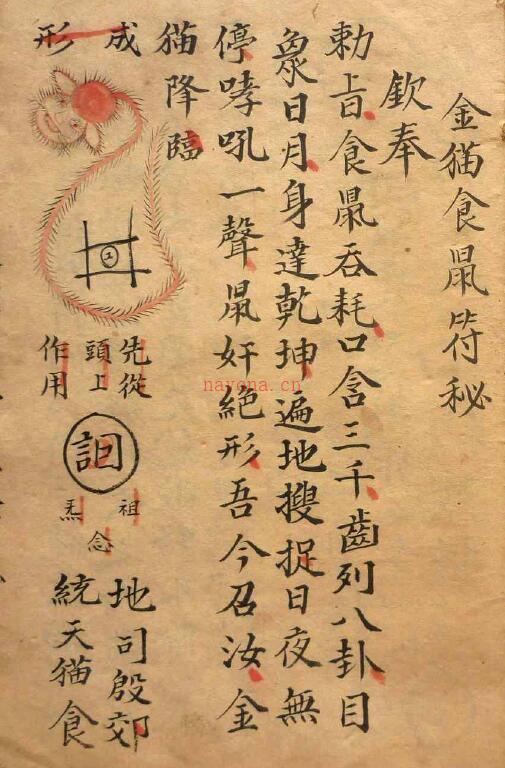 金猫食鼠符秘
欽奉
勅旨食鼠吞耗口含三千齒列八卦目
衆日月身達乾坤遍地搜捉日夜無
停哮吼一聲鼠奸絕形吾今召汝金
猫降臨
成
形
先從
頭上
作用
祖
念
炁
地司殷郊
統天猫食
nayona.cn